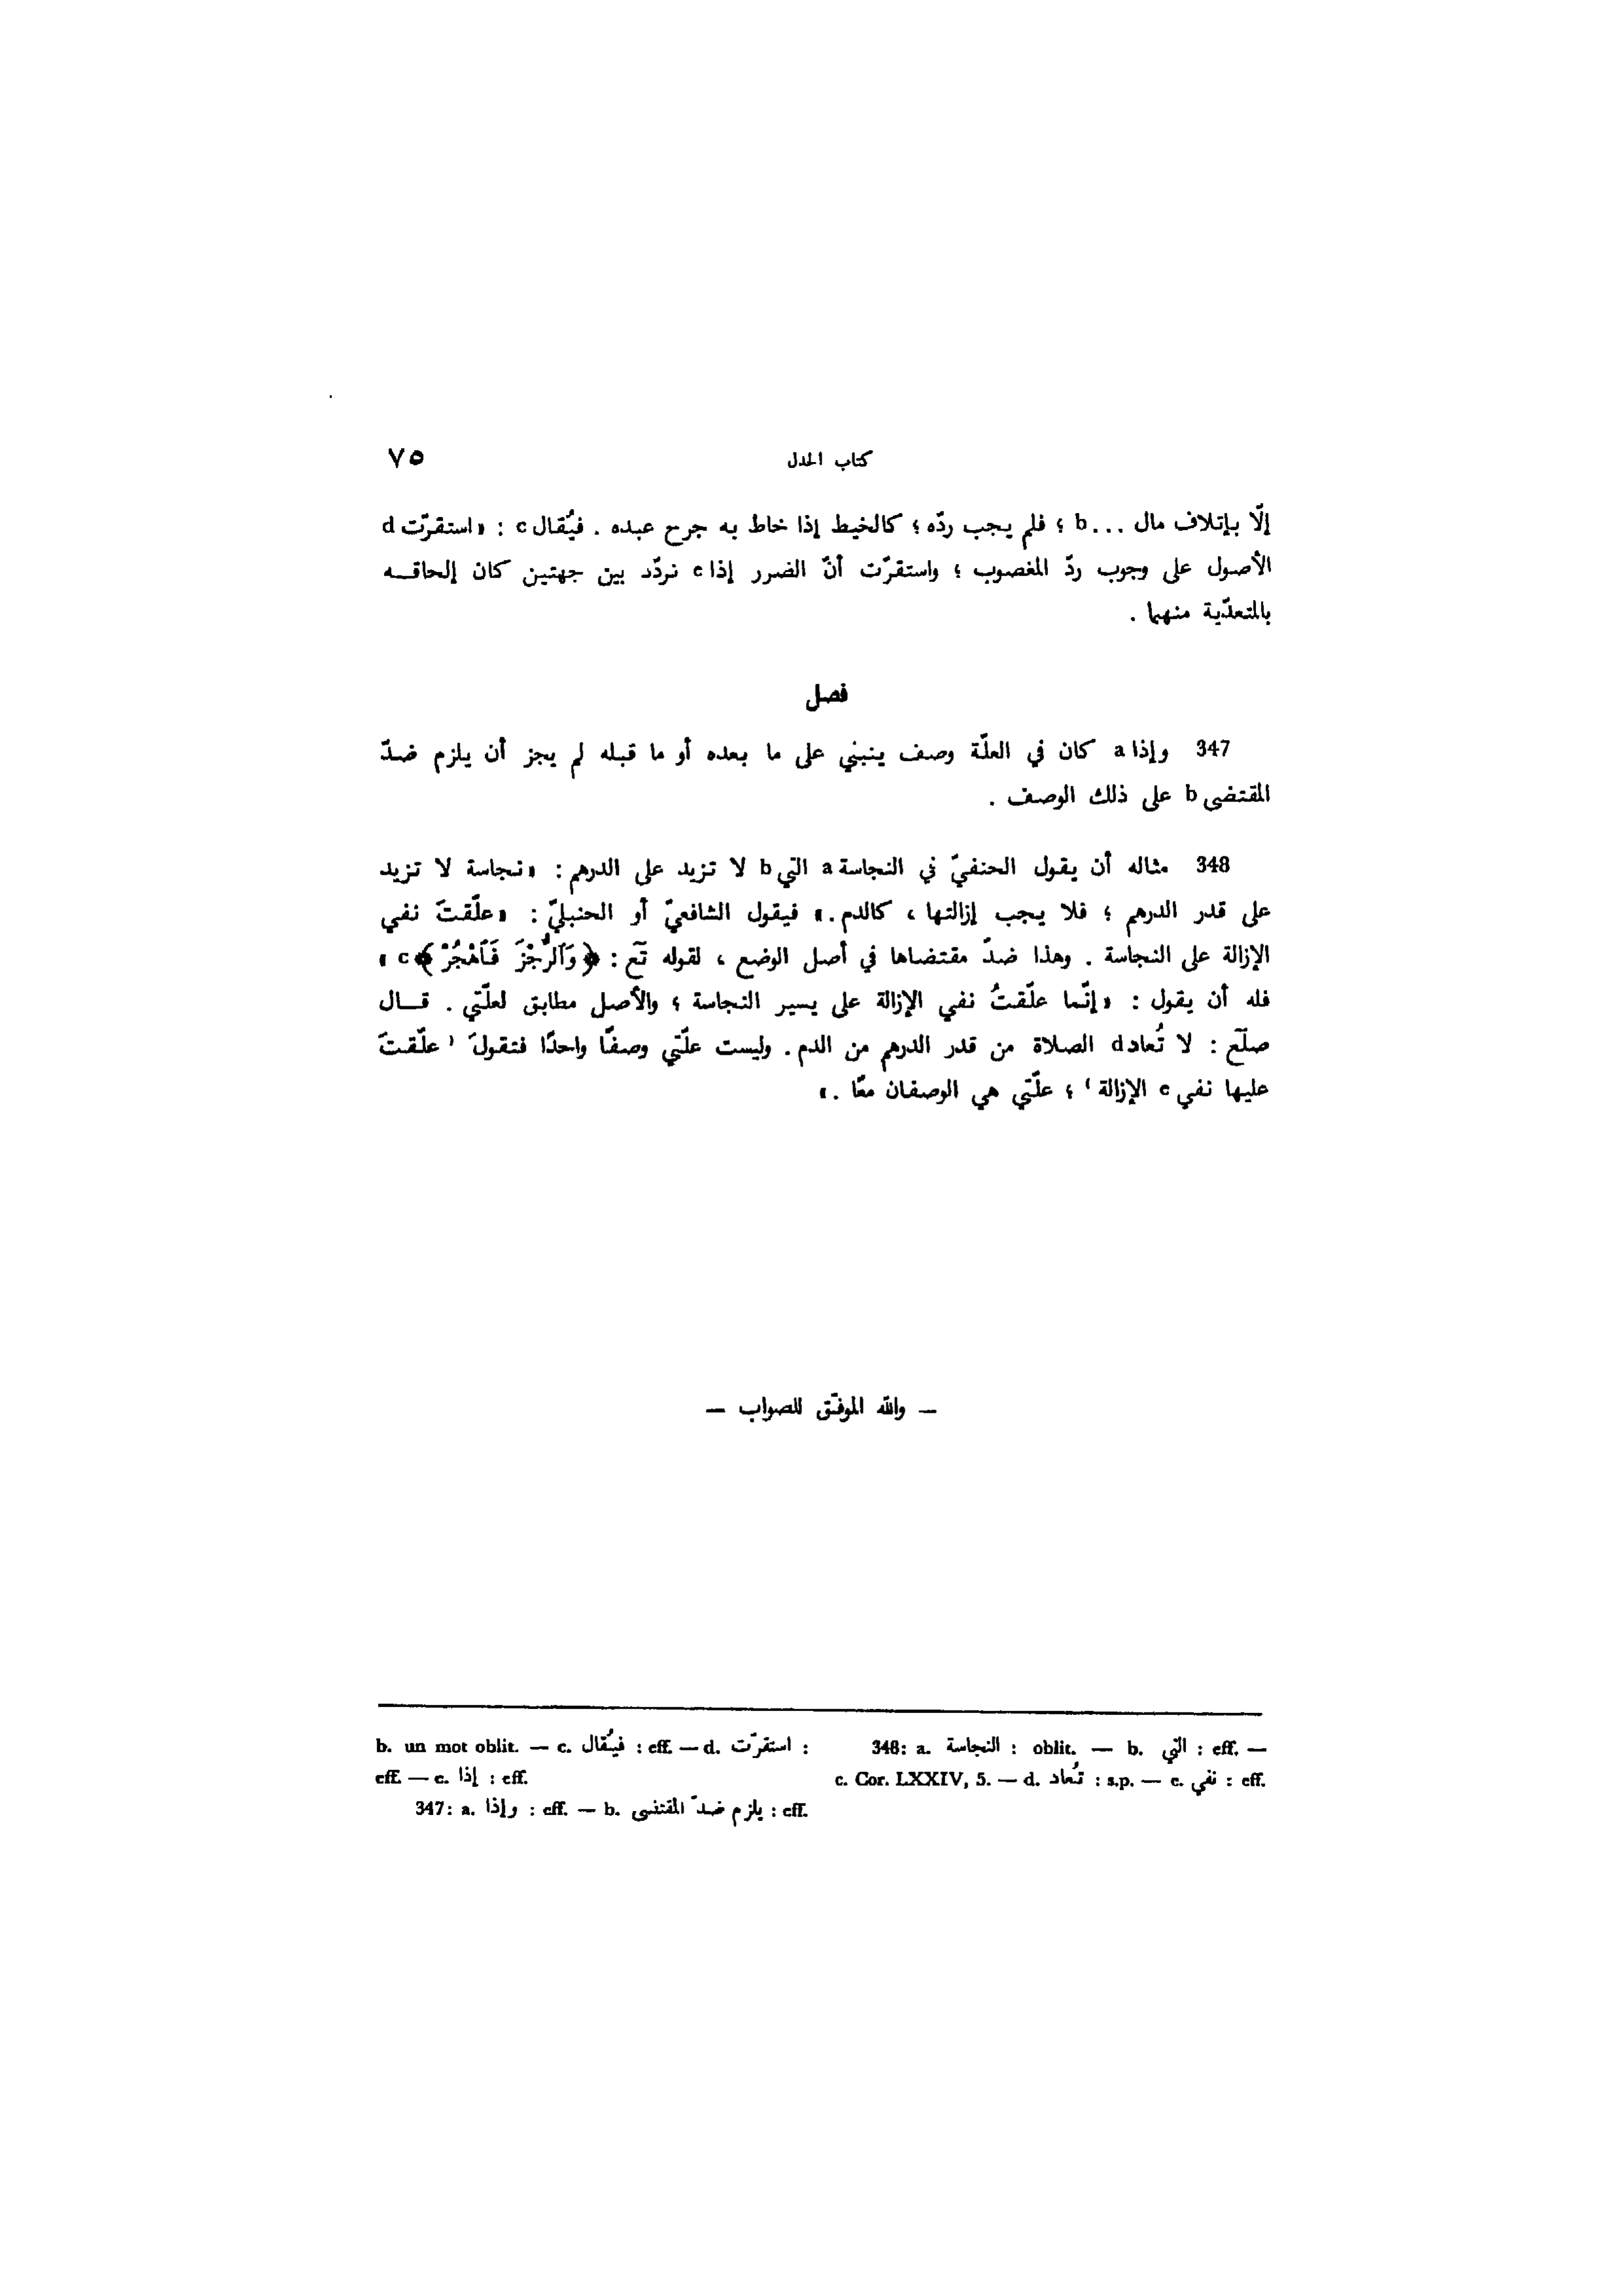 كتاب الجدل ٧٥
إلّا بإتلاف مال ...b ؛ فلم يجب ردّه ؛ كالخيط إذا خاط به جرح عبده . فيُقال c : «استقرّت d
الأصول على وجوب ردّ المغصوب ؛ واستقرّت أنّ الضرر إذا e تردّد بين جهتين كان إلحاقـه
بالمتعدّية منهما .
فصل
347 وإذا a كان في العلّة وصف ينبني على ما بعده أو ما قبله لم يجز أن يلزم ضدّ
المقتضى b على ذلك الوصف .
348 مثاله أن يقول الحنفيّ في النجاسة a التي b لا تزيد على الدرهم : «نجاسة لا تزيد
على قدر الدرهم ؛ فلا يجب إزالتها ، كالدم .» فيقول الشافعيّ أو الحنبليّ : «علّقتَ نفي
الإزالة على النجاسة . وهذا ضدّ مقتضاها في أصل الوضع ، لقوله تع : ﴿ وَٱلرُّجْزَ فَٱهْجُرْ ﴾ c »
فله أن يقول : «إنّما علّقتُ نفي الإزالة على يسير النجاسة ؛ والأصل مطابق لعلّتي . قـال
صلّع : لا تُعاد d الصلاة من قدر الدرهم من الدم . وليست علّتي وصفًا واحدًا فتقولَ ‘ علّقتَ
عليها نفي e الإزالة ’ ؛ علّتي هي الوصفان معًا .»
— والله الموفّق للصواب —
b. un mot oblit. — c. فيُقال : eff. — d. استقرّت :
eff. — e. إذا : eff.
347: a. وإذا : eff. — b. يلزم ضدّ المقتضى : eff.
348: a. النجاسة : oblit. — b. التي : eff. —
c. Cor. LXXIV, 5. — d. تُعاد : s.p. — e. نفي : eff.